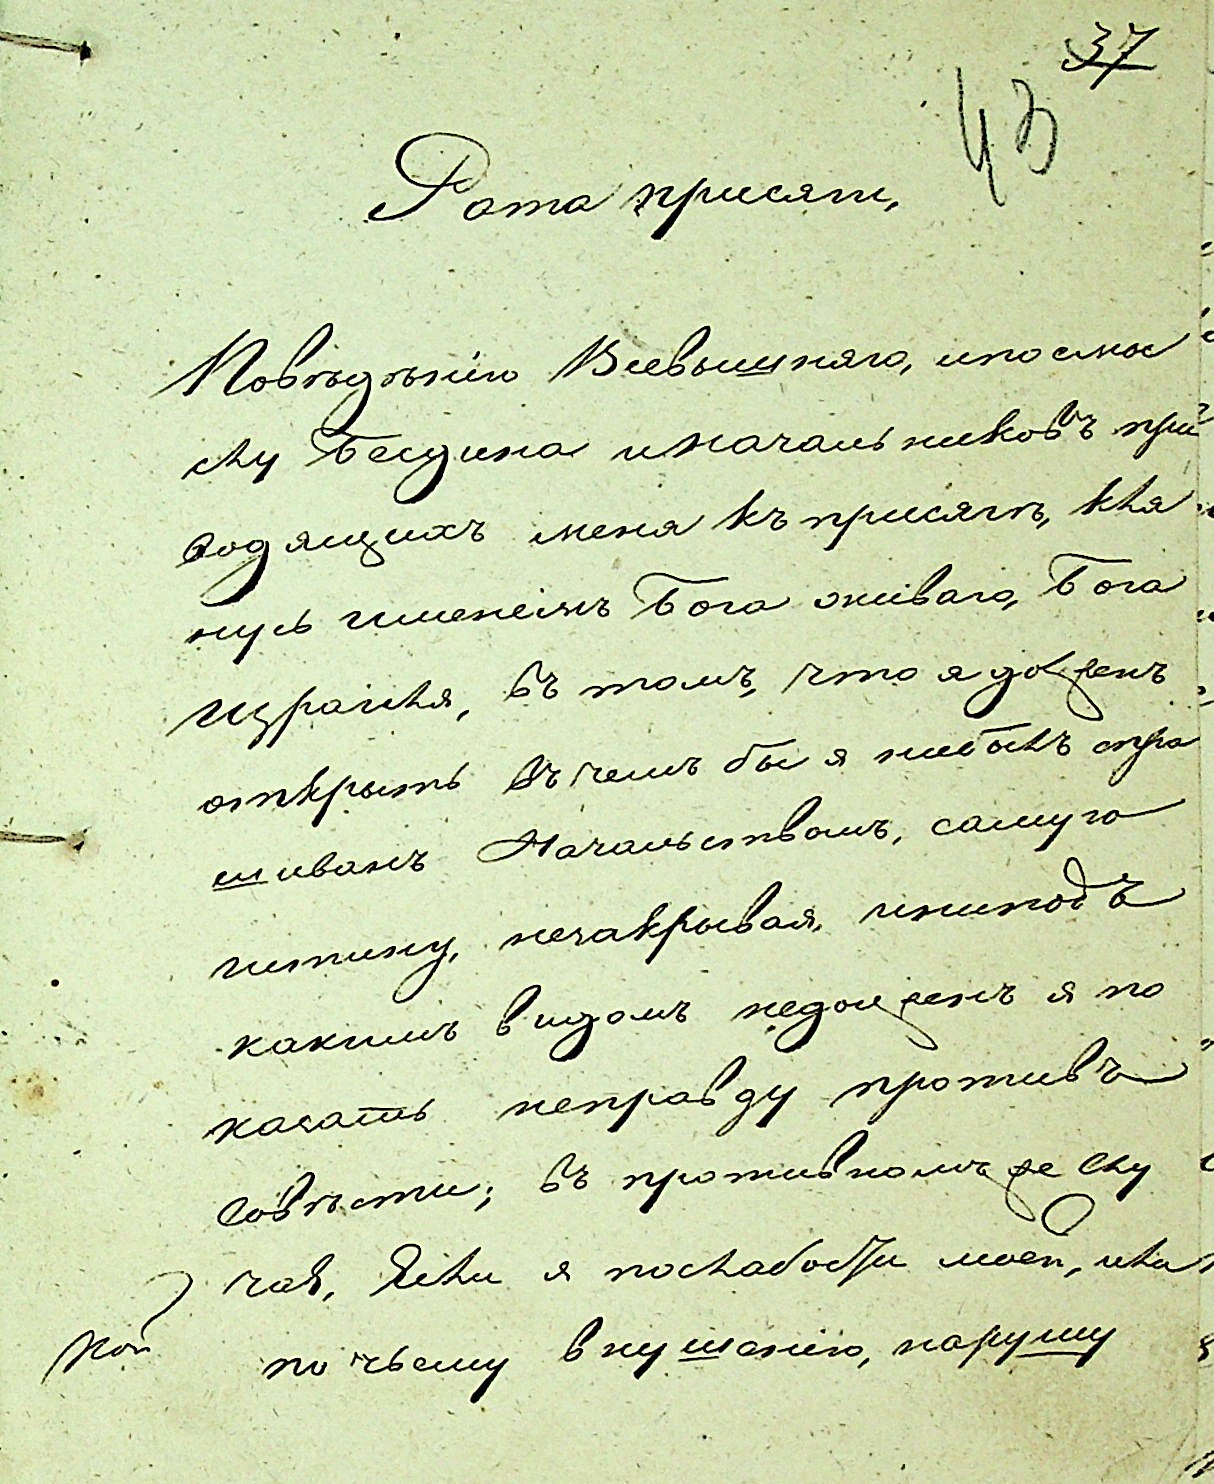 37
43
Рота присяги,
Повѣдѣнію Всевышняго, ипосмы
слу Бесдина иначальниковъ при
водящихъ меня къ присягѣ, кля
нусь именемъ Бога живаго, Бога
Израиля, въ томъ, что я долженъ
открыть въ чемъ бы я небылъ спра
шиванъ Начальствомъ, самую
истину, незакрывая, иниподъ
какимъ видомъ недолженъ я по
казать неправду противъ
совѣсти; въ противномъ же слу
чаѣ, Если я послабости моей, или
по чьему внушенію, нарушу